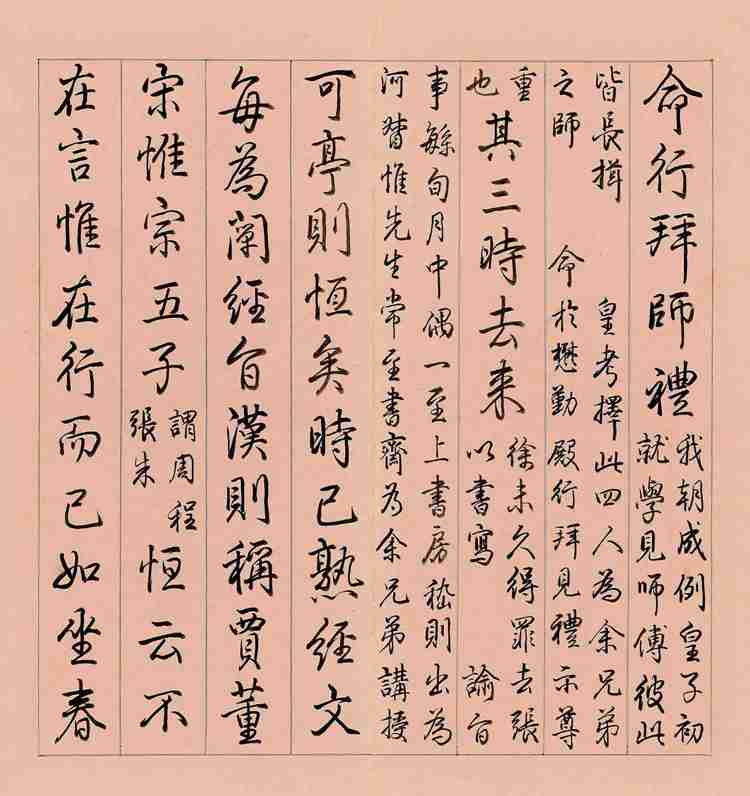 命行拜師禮
我朝成例皇子初
就學見師傅彼此
皆長揖 皇考擇此四人為余兄弟
之師 命於懋勤殿行拜見禮示尊
重
也
其三時去来
徐未久得罪去張
以書寫 諭旨
事緐旬月中偶一至上書房嵇則出為
河督惟先生常至書齋為余兄弟講授
可亭則恒矣時已熟經文
每為闡經旨漢則稱賈董
宋惟宗五子
謂周程
張朱
恒云不
在言惟在行而已如坐春